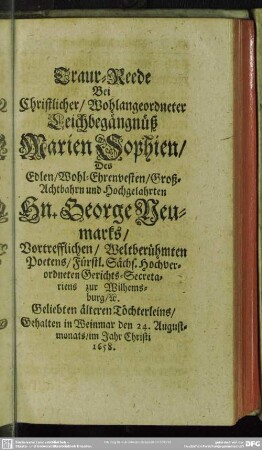 Traur-Reede
Bei
Christlicher/ Wohlangeordneter
Leichbegängnüß
Marien Sophien/
Des
Edlen/ Wohl-Ehrenvesten/ Groß-
Achtbahrn und Hochgelahrten
Hn. George Neu-
marks/
Vortrefflichen/ Weltberühmten
Poetens/ Fürstl. Sächs. Hochver-
ordneten Gerichts-Secreta-
riens zur Wilhems-
burg/ ꝛc.
Geliebten älteren Töchterleins/
Gehalten in Weinmar den 24. August-
monats/ im Jahr Christi
1658.
DFG